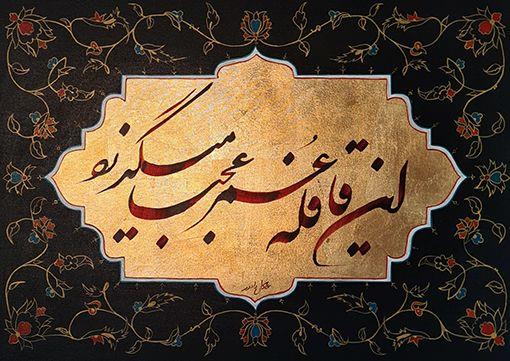 این قافله عُمر عجب میگذرد